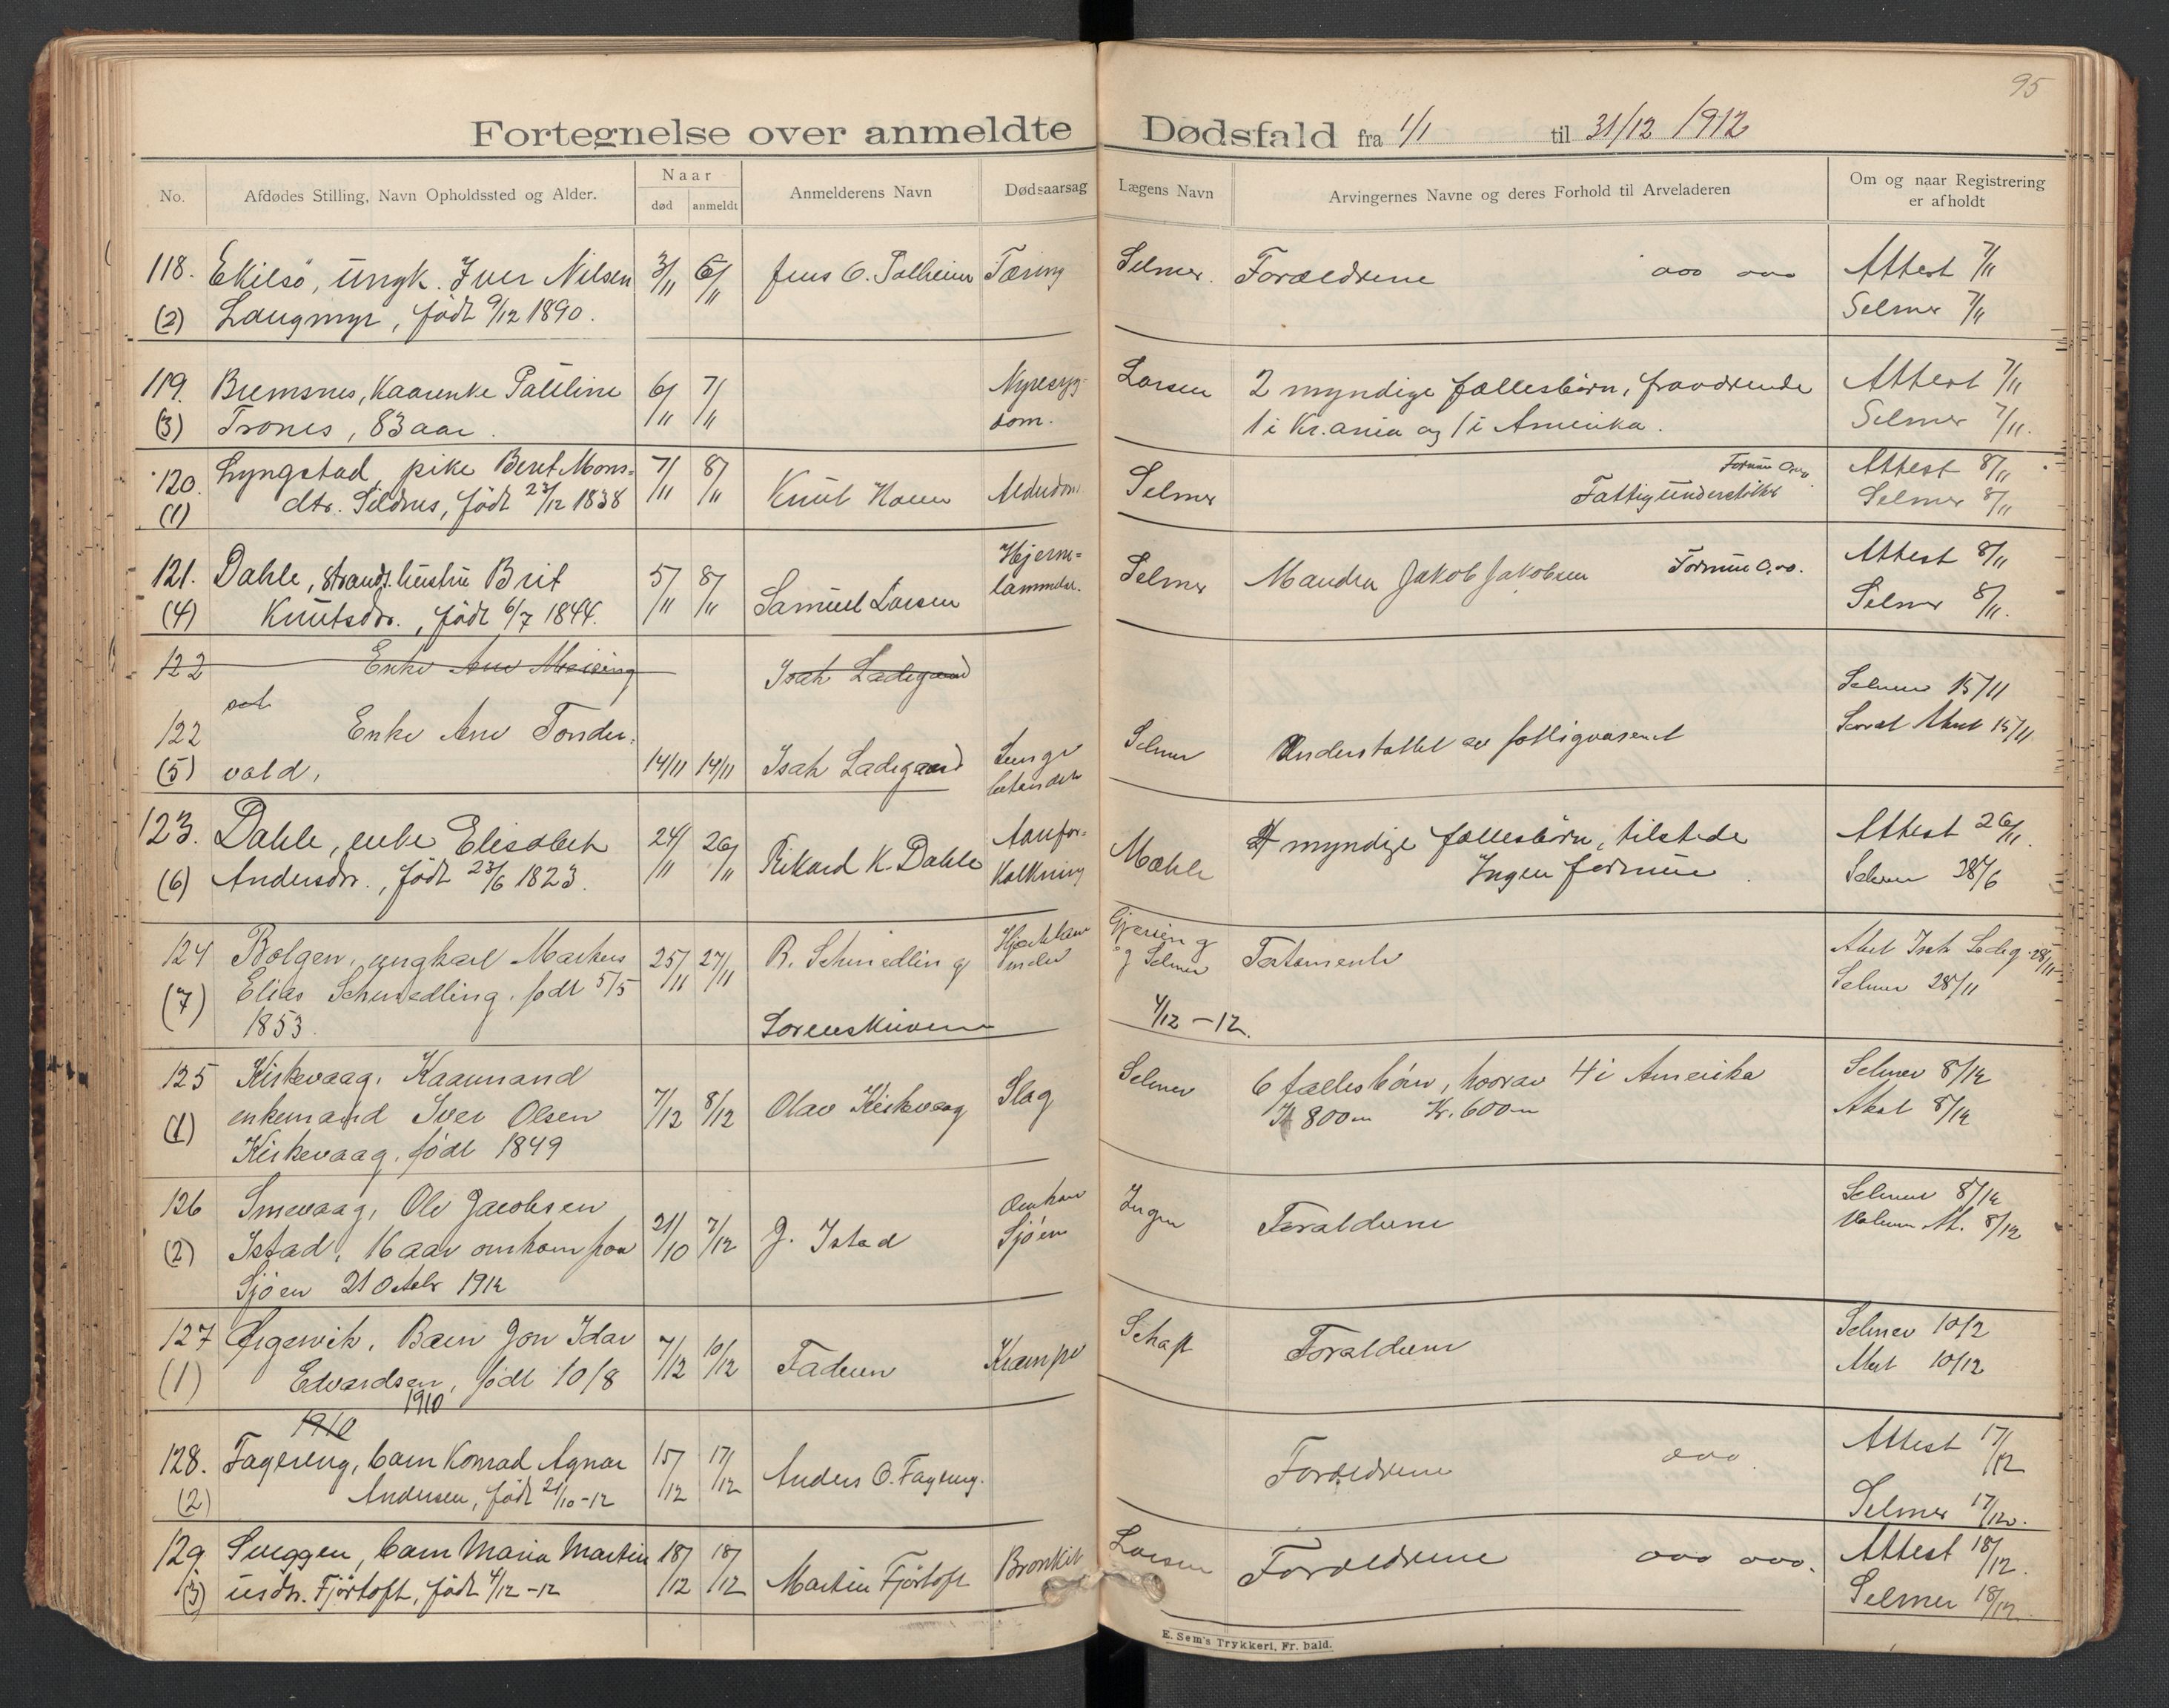 95
Fortegnelse over anmeldte Dødsfald fra 1/1 til 31/12 1912
No.
Afdødes Stilling, Navn Opholdssted og Alder.
Naar
død
anmeldt
Anmelderens Navn
Dødsaarsag
Lægens Navn
Arvingernes Navne og deres Forhold til Arveladeren
Om og naar Registrering
er afholdt
118. Ekilsö, ungk. Iver Nilsen 3/11 6/11 Jens O. Tæring Selmer. Forældrene ooo ooo Attest 7/11
(2) Langmyr, född 9/12 1890. Selmer 7/11
119. Bremsnes, Kaarenke Pauline 6/11 7/11 Nyresyg- Larsen 2 myndige fællesbörn, fraværende Attest 7/11
(3) Trones, 83 aar. dom. 1 i Kr.ania og 1 i Amerika. Selmer 7/11.
120. Lyngstad, pike Beret Mons= 7/11 8/11 Knut Alderdom Selmer Formue 0,00 Attest 8/11
(1) dtr. Sildnes, född 23/12 1838 Fattigunderstöttet Selmer 8/11
121. Dahle, strands. hustru Brit 5/11 8/11 Samuel Larsen Hjerne= Selmer Manden Jakob Jakobsen Formue 0,00. Attest 8/11
(4) Knutsdr., född 6/7 1844. lammelse. Selmer 8/11.
122 Enke Ane Isak Ladegaard
Selmer 15/11
122 Enke Ane Tonder- 14/11 14/11 Isak Ladegaard Lunge Selmer Understøttet av fattigvæsenet 15/11
(5) vold, betændelse
123. Dahle, enke Elisabet 24/11 26/11 Rikard K. Dahle Aarefor= Mæhle 4 myndige fællesbörn, tilstede Attest 26/11.
(6) Andersdr., född 23/6 1823. kalkning Ingen formue. Selmer 28/6
124 Bolgen, ungkarl Markus 25/11 27/11 R. Schmedling og Testamente 28/11
(7) Elias Schmedling. født 5/5 og Selmer Selmer 28/11
1853. Sorenskriveren 4/12-12.
125 Kirkevaag, Kaarmand 7/12 8/12 Olav Kirkevaag Slag Selmer 6 fællesbörn, hvorav 4 i Amerika Selmer 8/12
(1) enkemand Iver Olsen 800 Kr. 600 8/12
Kirkevaag. født 1849
126 Smevaag, Ole Jacobsen 21/10 7/12 J. Istad Omkom Ingen Forældrene Selmer 8/12
(2) Istad, 16 aar omkom paa Sjöen 8/12
Sjöen 21 Octobr 1912
127 Barn Jon Idar 7/12 10/12 Faderen Krampe Schaft Forældrene Selmer 10/2
(1) Edvardsen, født 10/8 10/12
1910
1910
128. Fagereng, barn Konrad Agnar 15/12 17/12 Anders O. Fagereng. Forældrene ooo. Attest 17/12
(2) Andersen, född 21/10-12 Selmer 17/12.
129 Sveggen, barn Maria Martin 18/12 18/12 Martin Fjörtoft Bronkit Larsen Forældrene ooo ooo. Attest 18/12.
(3) usdtr. Fjörtoft, född 4/12-12 Selmer 18/12.
E. Sem's Trykkeri, Fr.hald.